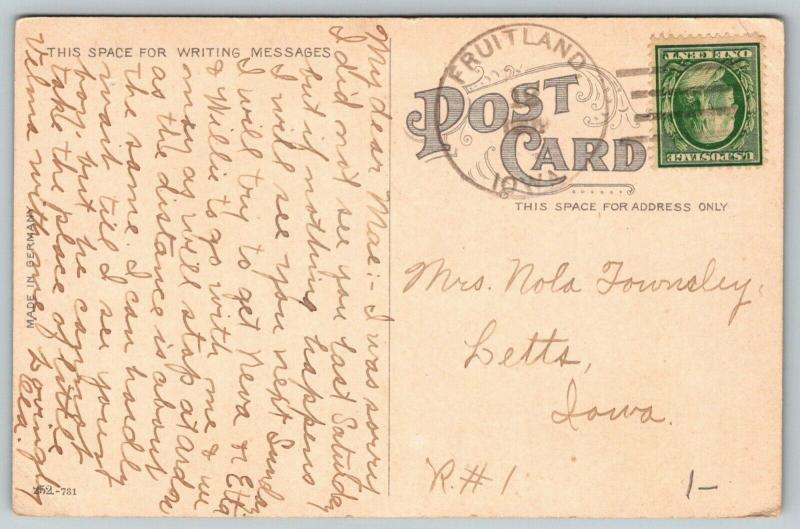 THIS SPACE FOR WRITING MESSAGES
My dear Mae:- I was sorry
I did not see you last Saturday
but if nothing happens
I will see you next Sunday
I will try to get Neva & Etta
& Willie to go with me & we
may as well stop at Ardon
as the distance is about
the same. I can hardly
wait till I see your
boy, but he cannot
take the place of little
Velma with me. Lovingly
Cea.
MADE IN GERMANY
252.-731
POST CARD
FRUITLAND
IOWA
ONE CENT
U.S. POSTAGE
THIS SPACE FOR ADDRESS ONLY
Mrs. Nola Townsley,
Letts,
Iowa.
R.#1
1-